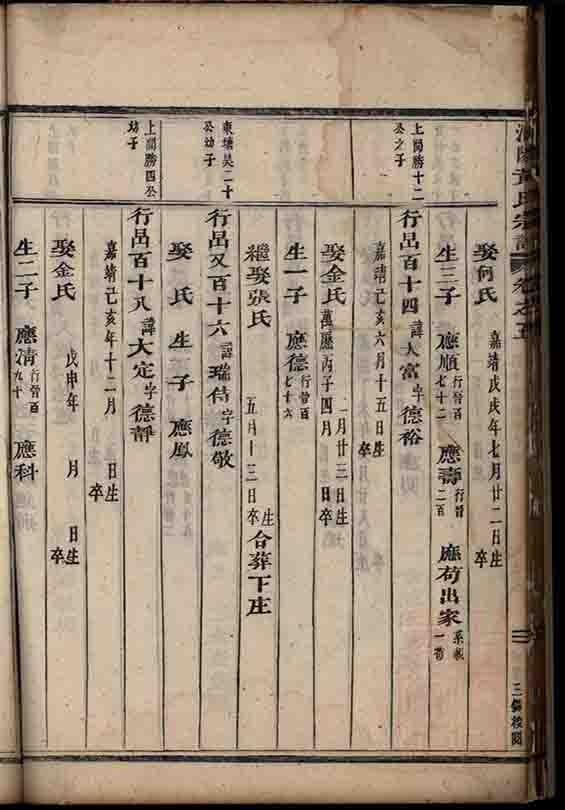 黃氏宗譜 卷之五
三餘校閱
娶何氏 嘉靖戊戌年七月廿二日生 卒
生三子 應順行晉百七十二 應壽行晉二百 應苟出家
上閣勝十二公之子
行呂百十四諱大富字德裕
嘉靖己亥六月十五日生 卒
娶金氏 萬曆丙子四月 月廿三日生 日卒
生一子 應德行晉百七十六
繼娶張氏 五月十三日生卒 合葬下庄
東塘吳二十公幼子
行呂又百十六諱瑞侍字德敬
娶 氏 生一子 應鳳
上閣勝四公幼子
行呂百十八諱大定字德靜
嘉靖己亥年十二月 日生 卒
娶金氏 戊申年 月 日生 卒
生二子 應清行晉百九十 應科